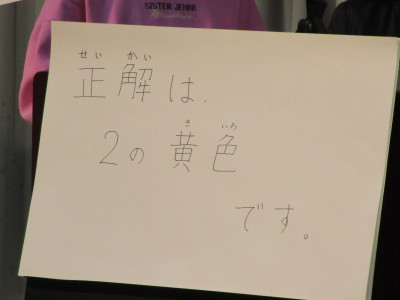 SISTER JENNI
せい かい
正解は、
き いろ
2の黄色
です。